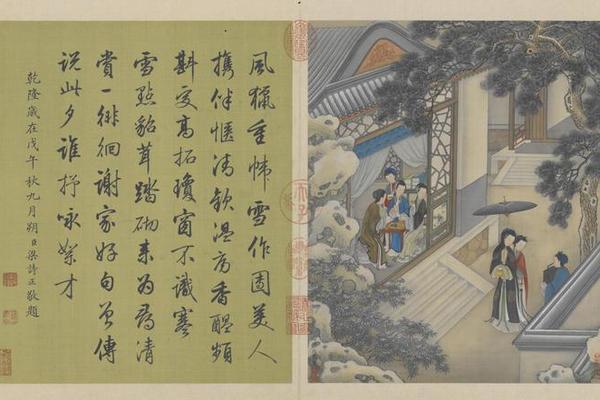 風獵重幃雪作團美人
攜伴愜清歡溫房香醞頻
斟處高拓瓊窗不識寒
雪點貂茸踏砌來為尋清
賞一徘徊謝家好句曾傳
說此夕誰抒詠絮才
乾隆歲在戊午秋九月朔日梁詩正敬題